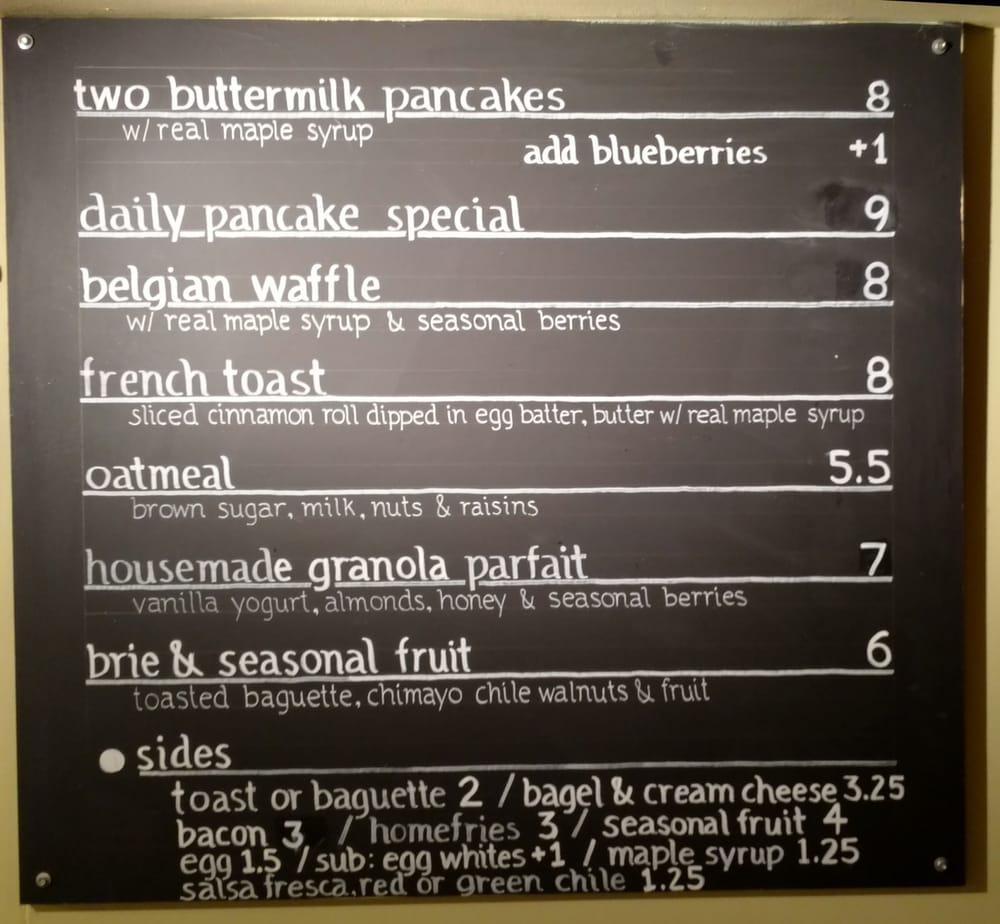 two buttermilk pancakes 8
w/ real maple syrup
add blueberries +1
daily pancake special 9
belgian waffle 8
w/ real maple syrup & seasonal berries
french toast 8
sliced cinnamon roll dipped in egg batter, butter w/ real maple syrup
oatmeal 5.5
brown sugar, milk, nuts & raisins
housemade granola parfait 7
vanilla yogurt, almonds, honey & seasonal berries
brie & seasonal fruit 6
toasted baguette, chimayo chile walnuts & fruit
sides
toast or baguette 2 / bagel & cream cheese 3.25
bacon 3 / homefries 3 / seasonal fruit 4
egg 1.5 / sub: egg whites +1 / maple syrup 1.25
salsa fresca, red or green chile 1.25